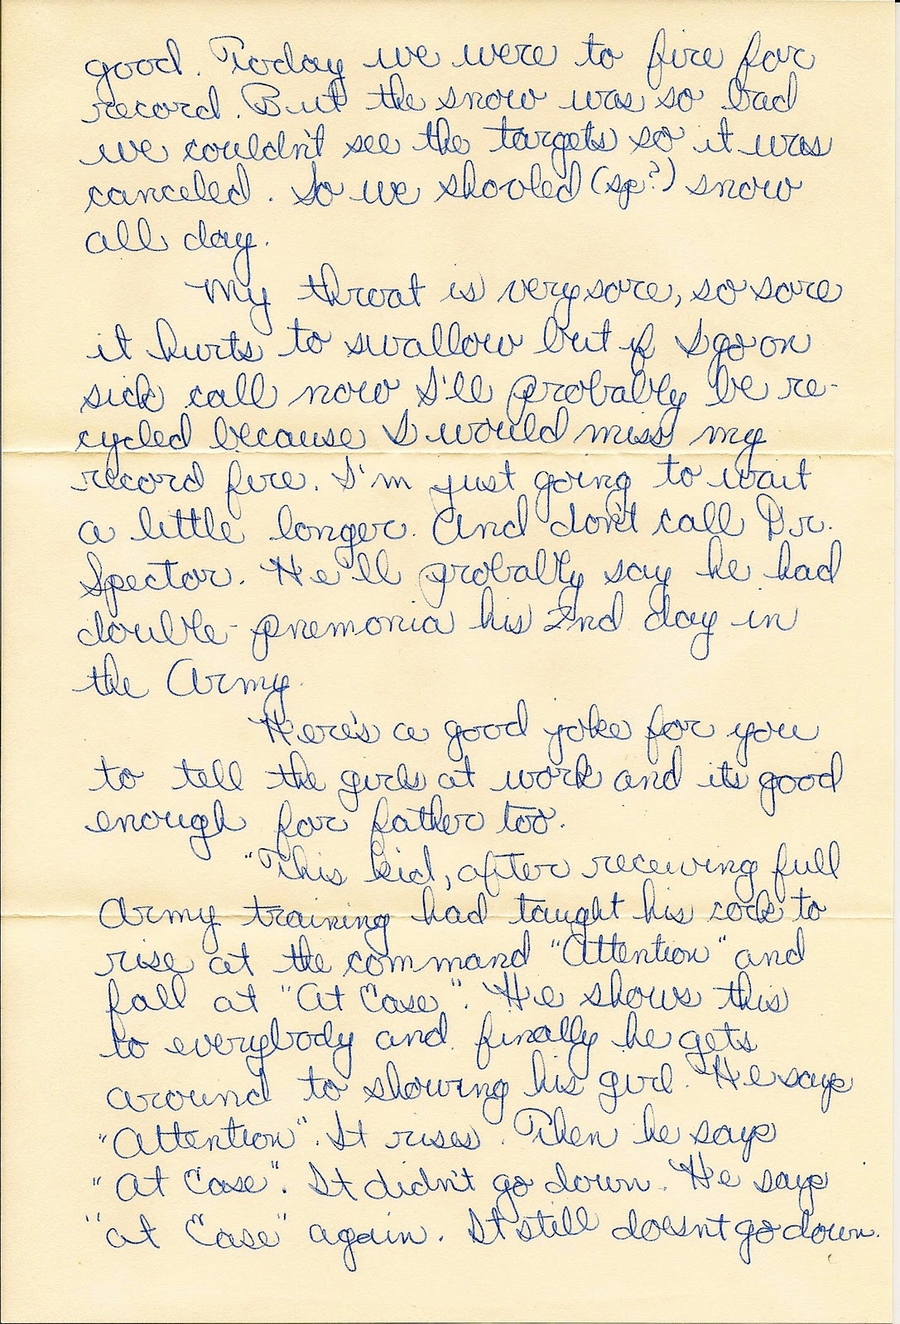 good. Today we were to fire for
record. But the snow was so bad
we couldn't see the targets so it was
canceled. So we shovled (sp?) snow
all day.
My throat is very sore, so sore
it hurts to swallow but if I go on
sick call now I'll probably be re-
cycled because I would miss my
record fire. I'm just going to wait
a little longer. And don't call Dr.
Spector. He'll probally say he had
double-pnemonia his 2nd day in
the Army.
Here's a good joke for you
to tell the girls at work and its good
enough for father too.
"This kid, after receiving full
Army training had taught his cock to
rise at the command "Attention" and
fall at "At Ease". He shows this
to everybody and finally he gets
around to showing his girl. He says
"Attention". It rises. Then he says
"At Ease". It didn't go down. He says
"at Ease" again. It still doesn't go down.